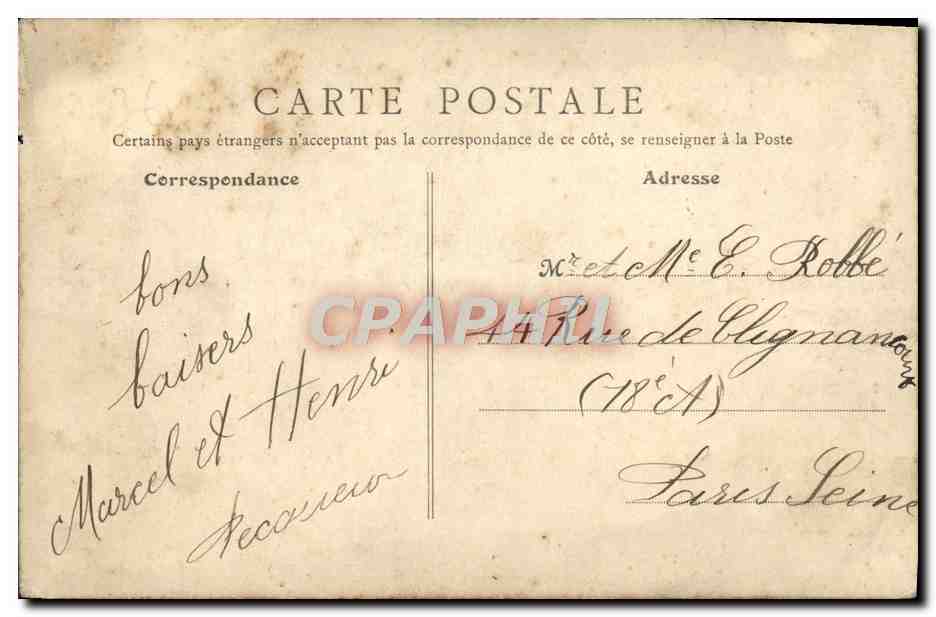 CARTE POSTALE
Certains pays étrangers n'acceptant pas la correspondance de ce côté, se renseigner à la Poste
Correspondance
bons
baisers
Marcel et Henri
Adresse
Mr et Me E. Robbé
44 Rue de Clignancourt
(18e A)
Paris Seine
CPAPHIL